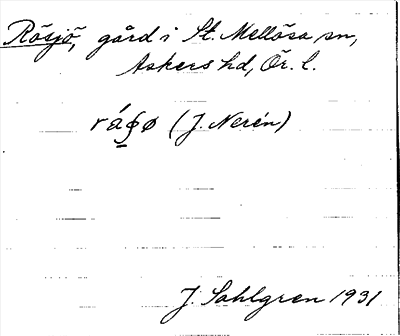 Rösjö, gård i St. Mellösa sn,
Askers hd, Ör. l.
(J. Nerén)
J. Sahlgren 1931